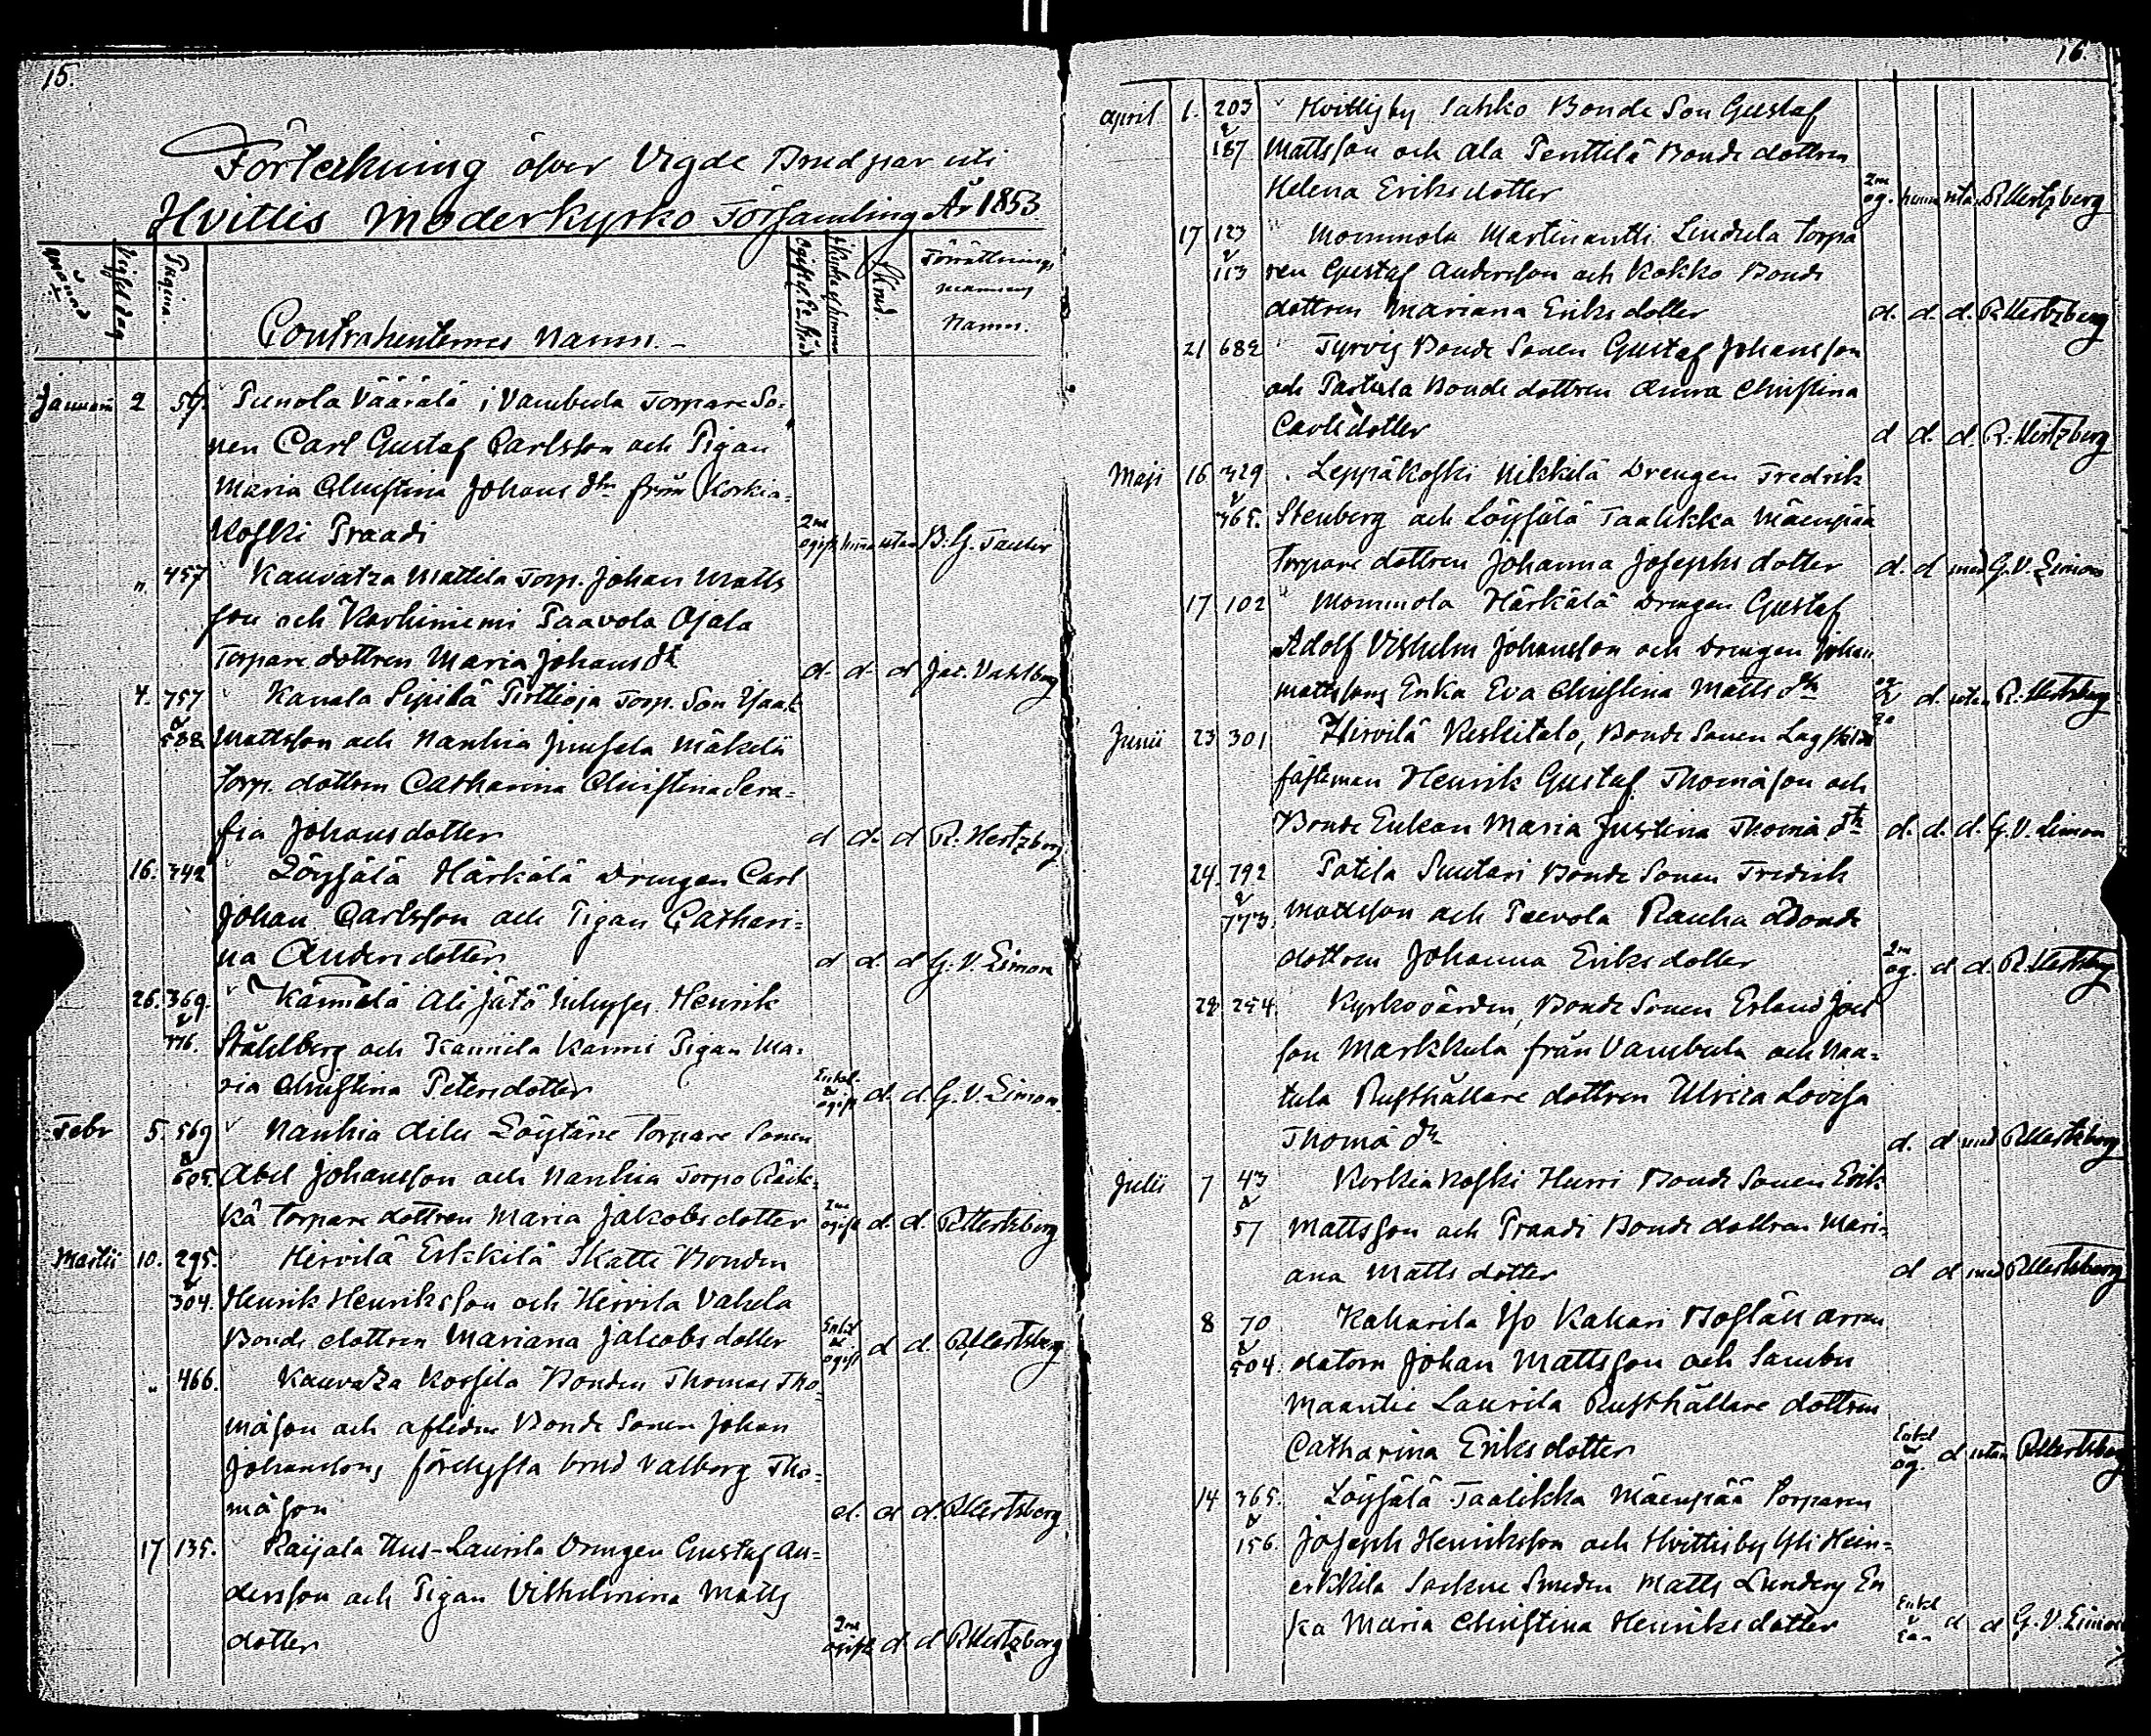 15.
Förteckning öfver Vigde Brudpar uti
Hvittis Moderkyrko Församling År 1853.
Månad Vigsel dag Pagina. Contrahenternes Namn. Brud. Förrättnings mannens Namn.
Januarii 2 54. Punola Väärälä i Vambula Torpare So-
nen Carl Gustaf Carlsson och Pigan
Maria Christina Johans dtr från Korkia-
koski Praadi 2ne ogift hema utan B. G. Tauler
" 457 Kauvatza Mattila Torp. Johan Matts
son och Karhiniemi Paavola Ojala
Torpare dottren Maria Johans dtr d. d. d Jac. Vahlberg
4. 757 Kanala Sipilä Pirttioja Torp. Son Isaak
& 588 Mattsson och Nanhia Junsela Mäkelä
Torp. dottren Catharina Christina Sera-
fia Johansdotter d d. d R. Hertzberg
16. 342 Löysälä Härkälä Drengen Carl
Johan Carlsson och Pigan Cathari-
na Andersdotter d d. d G. V. Limon
26. 369. Kännölä Ali Jätö Inhyses Henrik
& 376. Ståhlberg och Kännilä Kanni Pigan Ma-
ria Christina Petersdotter Enkel. & ogift d. d. G. V. Limon.
Febr 5. 569 Nanhia Löytäne Torpare Sonen
& 605. Abel Johansson och Nanhia Torpo Räik-
kä Torpare dottren Maria Jakobsdotter 2ne ogift d. d. R. Hertzberg
Martii 10. 295. Hirvilä Erkkilä Skatte Bonden
& 304. Henrik Henriksson och Hirvilä Vahela
Bonde dottren Mariana Jakobsdotter Enkel & ogift d d. R. Hertzberg
" 466. Kauvatza Kossila Bonden Thomas Tho-
mäson och aflidne Bonde Sonen Johan
Johanssons förelysta brud Valborg Tho-
mäson d. d d. R. Hertzberg
17 135. Raijala Uus-Laurila Drengen Gustaf An-
dersson och Pigan Vilhelmina Matts
dotter 2ne ogift d. d R. Hertzberg
16.
April 1. 203 Hvittisby Sahko Bonde Son Gustaf
& 187 Mattsson och Ala Penttilä Bonde dottren
Helena Eriksdotter 2ne og. hema utan R. Hertzberg
17 123 Mommola Martinantti Lindula Torpa
& 113 ren Gustaf Andersson och Kokko Bonde
dottren Mariana Eriksdotter d. d. d. R. Hertzberg
21 682 Tyrvis Bonde Sonen Gustaf Johansson
och Partula Bonde dottren Anna Christina
Carlsdotter d d. d. R. Hertzberg
Maji 16 329 . Leppäkoski Nikkilä Drengen Fredrik
& 365. Stenberg och Löysälä Taalikka Mäenpää
Torpare dottren Johanna Josephsdotter d. d med G. V. Limon
17 102 Mommola Härkälä Drengen Gustaf
Adolf Vilhelm Johansson och Drengen Johan
Mattssons Enka Eva Christina Matts dtr og & Ea d. utan R. Hertzberg
Junii 23 301 Hirvilä Keskitalo, Bonde Sonen Lag
fästeman Henrik Gustaf Thomäson och
Bonde Enkan Maria Justina Thomä dtr d. d. d. G. V. Limon
24. 792 Potila Suutari Bonde Sonen Fredrik
& 773. Mattsson och Peevola Rauha Bonde
dottren Johanna Eriksdotter 2ne og. d d. R. Hertzberg
28 254 Kyrkovärden, Bonde Sonen Erland Joel
son Markkula från Vambula och Naa-
tula Rusthållare dottren Ulrica Lovisa
Thomä dtr d. d med R. Hertzberg
Julii 7 43 Korkiakoski Hurri Bonde Sonen Erik
& 57 Mattsson och Praadi Bonde dottren Mari-
ana Mattsdotter d d med R. Hertzberg
8 70 Kaharila Iso Kahari Boställ arren
& 504. datorn Johan Mattsson och Sambu
Maantie Laurila Rusthållare dottren
Catharina Eriksdotter Enkel & og. d utan R. Hertzberg
14 365. Löysälä Taalikka Mäenpää Torparen
& 156. Joseph Henriksson och Hvittisby Yli Hein-
erkkilä Sockne Smeden Matts Lunderg En
ka Maria Christina Henriksdotter Enkel & Ean d d G. V. Limon